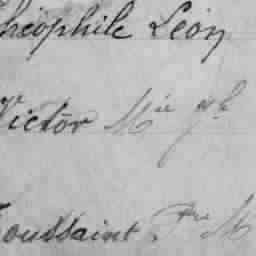 Théophile Léon
Victor Mie Jh
Toussaint, Pre M